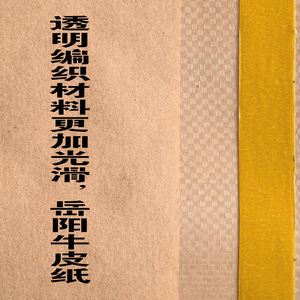 透明编织材料更加光滑，岳阳牛皮纸